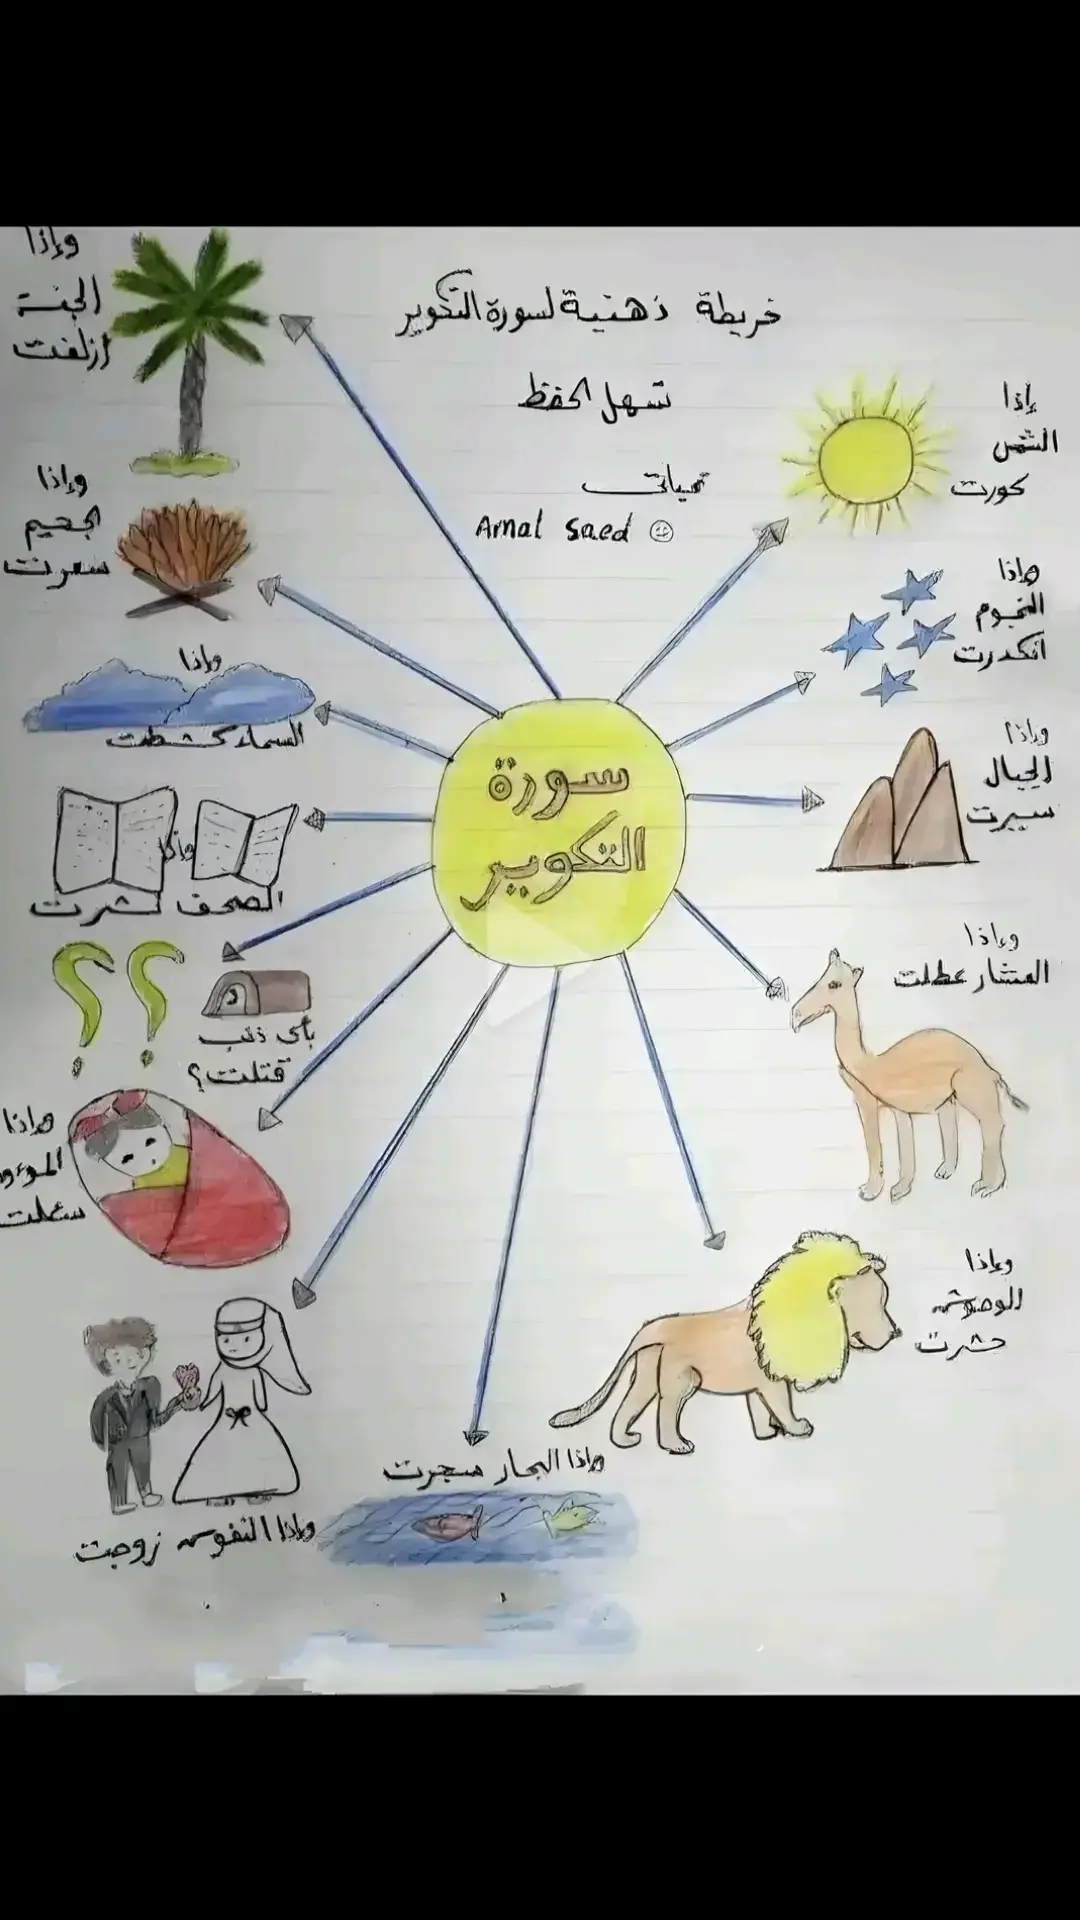 خريطة ذهنية لسورة التكوير
تسهل الحفظ
تحياتي
Amal Saed
سورة
التكوير
إذا
الشمس
كورت
وإذا
النجوم
انكدرت
وإذا
الجبال
سيرت
وإذا
العشار عطلت
وإذا
الوحوش
حشرت
وإذا البحار سجرت
وإذا النفوس زوجت
وإذا
الموءو
سئلت
بأى ذنب
قتلت؟
وإذا
الصحف نشرت
وإذا
السماء كشطت
وإذا
الجحيم
سعرت
وإذا
الجنة
ازلفت